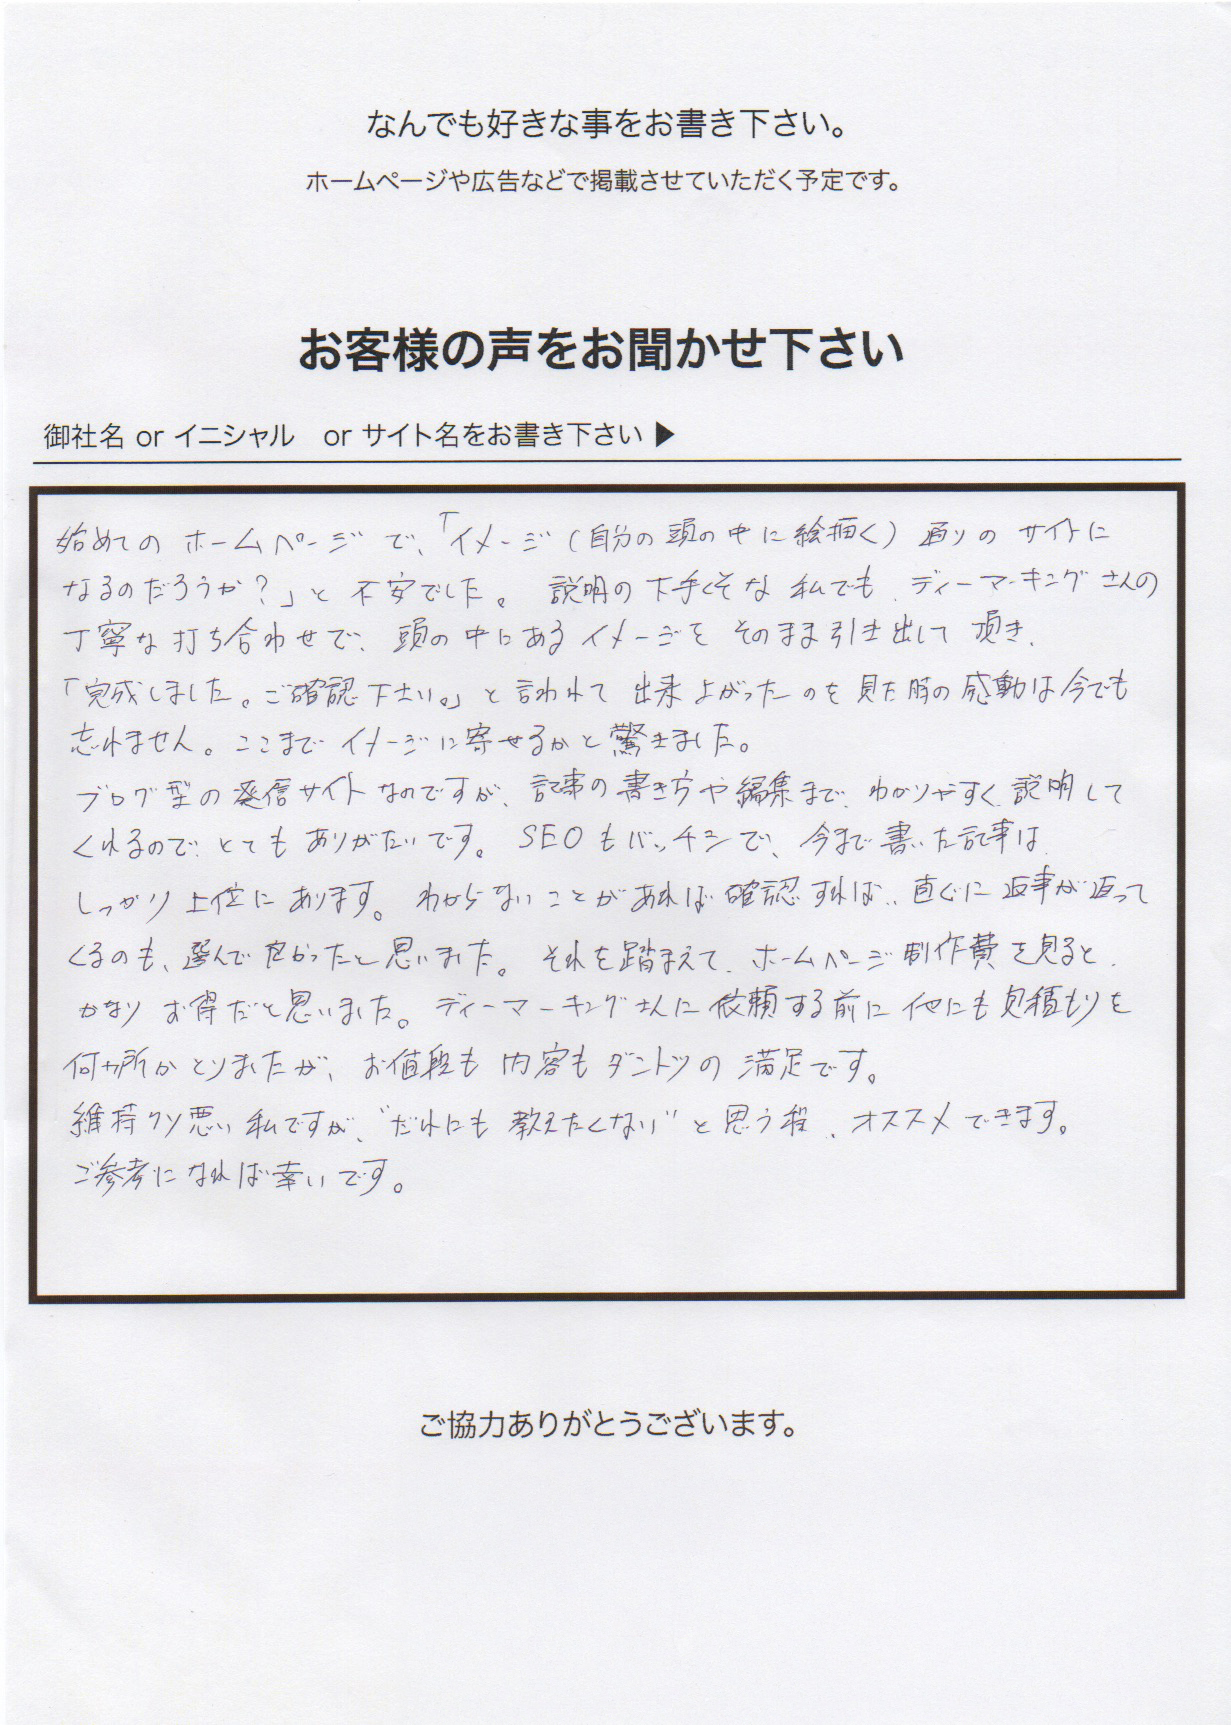 なんでも好きな事をお書き下さい。
ホームページや広告などで掲載させていただく予定です。
お客様の声をお聞かせ下さい
御社名 or イニシャル　or サイト名をお書き下さい ▶
始めてのホームページで、「イメージ(自分の頭の中に絵描く)通りのサイトに
なるのだろうか?」と不安でした。説明の下手くそな私でも、ディーマーキングさんの
丁寧な打ち合わせで、頭の中にあるイメージをそのまま引き出して頂き、
「完成しました。ご確認下さい。」と言われて出来上がったのを見た時の感動は今でも
忘れません。ここまでイメージに寄せるかと驚きました。
ブログ型の発信サイトなのですが、記事の書き方や編集まで、わかりやすく説明して
くれるので、とてもありがたいです。SEOもバッチシで、今まで書いた記事は
しっかり上位にあります。わからないことがあれば確認すれば、直ぐに返事が返って
くるのも、選んで良かったと思いました。それを踏まえて、ホームページ制作費を見ると、
かなりお得だと思いました。ディーマーキングさんに依頼する前に他にも見積もりを
何ヵ所かとりましたが、お値段も内容もダントツの満足です。
維持クソ悪い私ですが、"だれにも教えたくない"と思う程、オススメできます。
ご参考になれば幸いです。
ご協力ありがとうございます。